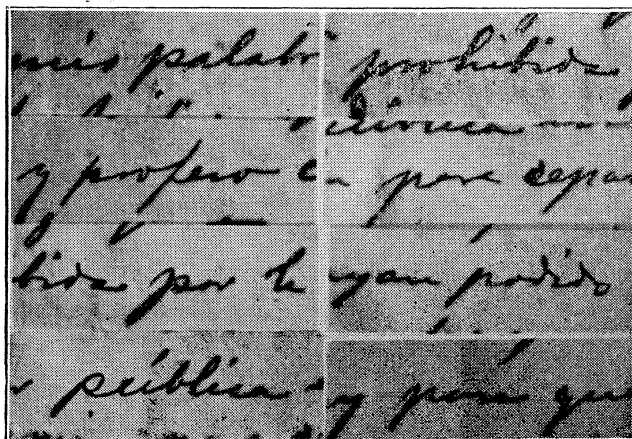 mis palabr prohibida
y profero c para sepa
bida por la yan podido
pública y para que